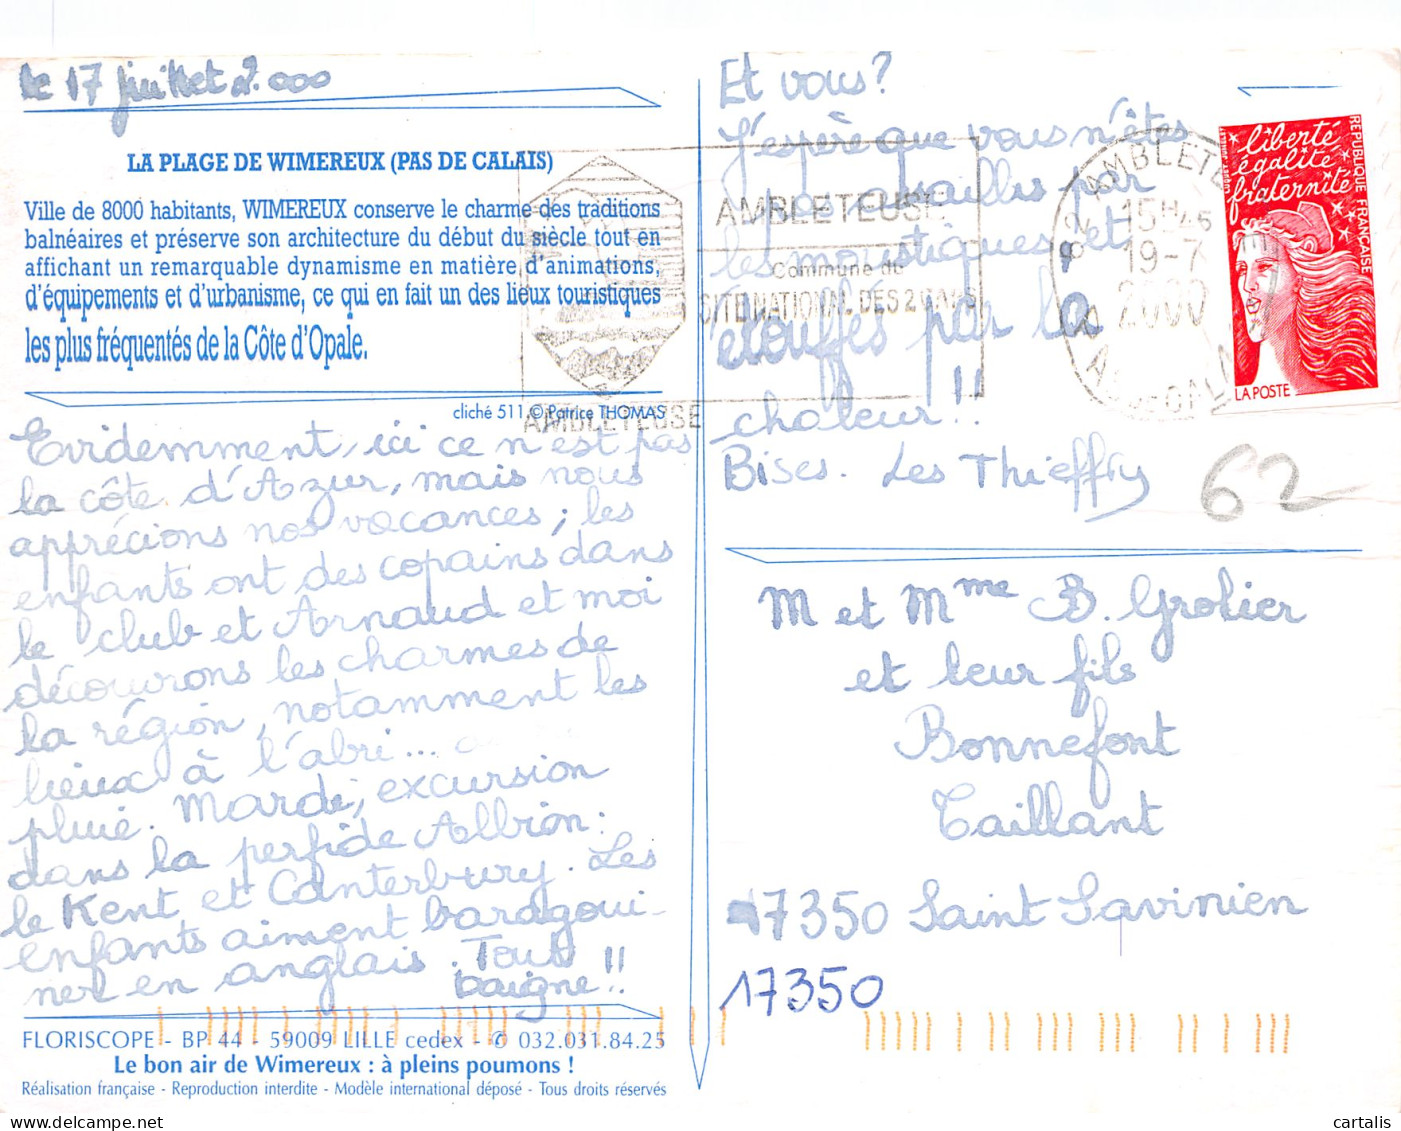 le 17 juillet 2.000
LA PLAGE DE WIMEREUX (PAS DE CALAIS)
Ville de 8000 habitants, WIMEREUX conserve le charme des traditions
balnéaires et préserve son architecture du début du siècle tout en
affichant un remarquable dynamisme en matière d'animations,
d'équipements et d'urbanisme, ce qui en fait un des lieux touristiques
les plus fréquentés de la Côte d'Opale.
cliché 511 © Patrice THOMAS
Evidemment, ici ce n'est pas
la côte d'Azur, mais nous
apprécions nos vacances ; les
enfants ont des copains dans
le club et Arnaud et moi
découvrons les charmes de
la région, notamment les
lieux à l'abri...
pluie. Mardi, excursion
dans la perfide Albion :
le Kent et Canterbury. Les
enfants aiment baragoui-
ner en anglais. Tout
baigne !!
FLORISCOPE - BP 44 - 59009 LILLE cedex - ✆ 032.031.84.25
Le bon air de Wimereux : à pleins poumons !
Réalisation française - Reproduction interdite - Modèle international déposé - Tous droits réservés
Et vous ?
J'espère que vous n'êtes
pas assaillis par
les moustiques et
étouffés par la
chaleur !!
Bises. Les Thieffry
AMBLETEUSE
Commune du
SITE NATIONAL DES 2 CAPS
AMBLETEUSE
62 AMBLETE
15H45
19-7
2000
liberté
égalité
fraternité
REPUBLIQUE FRANÇAISE
LA POSTE
62
M et Mme B. Grolier
et leur fils
Bonnefont
Taillant
17350 Saint Savinien
17350
cartalis